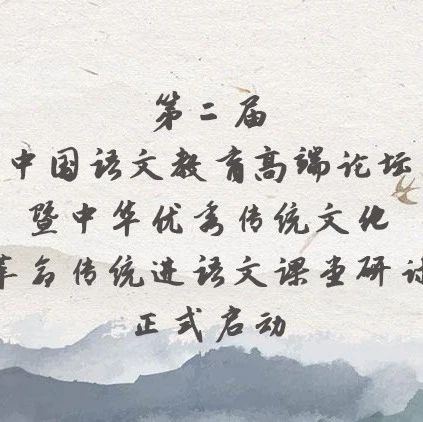 第二届
中国语文教育高端论坛
暨中华优秀传统文化
革命传统进语文课堂研讨
正式启动